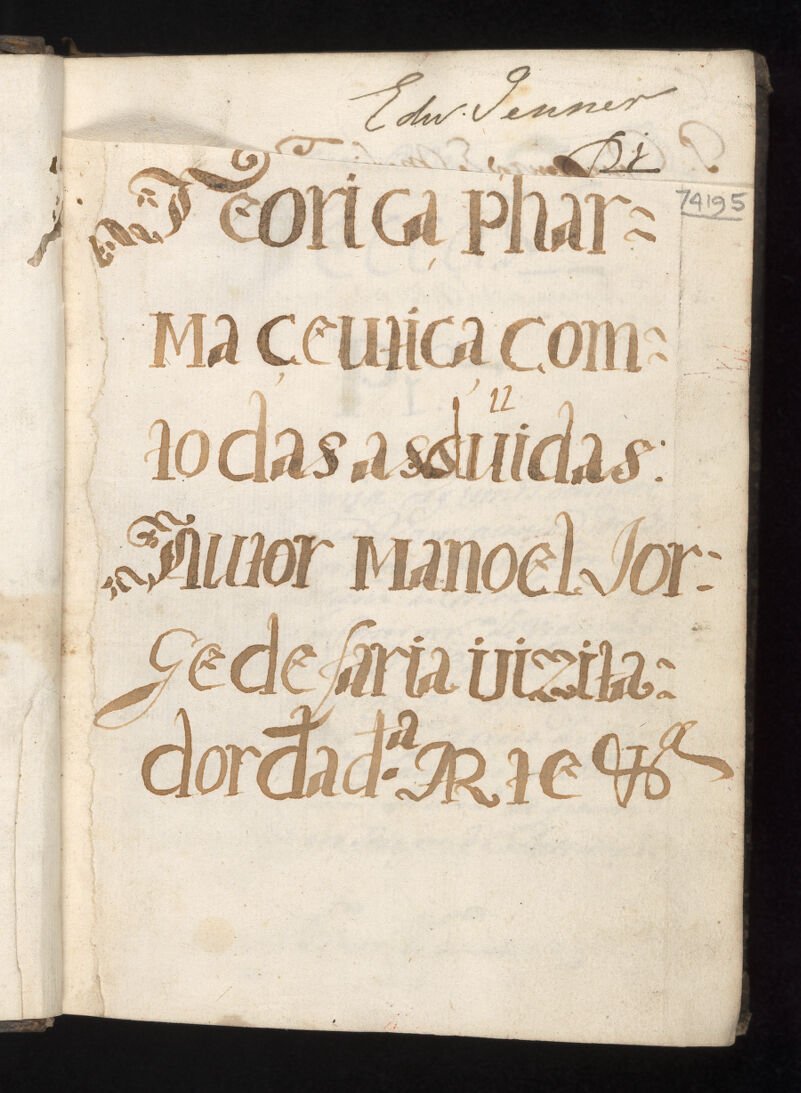 Edw. Jenner
74195
Teorica phar=
Maçeutica com=
todas as duuidas.
Autor Manoel Jor=
Ge de faria uizita=
dor da d.ª Arte &ª